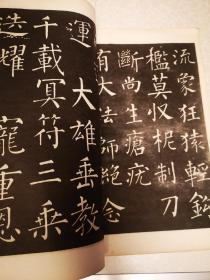 流象狂猿輕鈎
檻莫収柅制刀
斷尚生瘡疣
有大法師絕念
運大雄垂教
千載冥符三乗
迭耀寵重恩